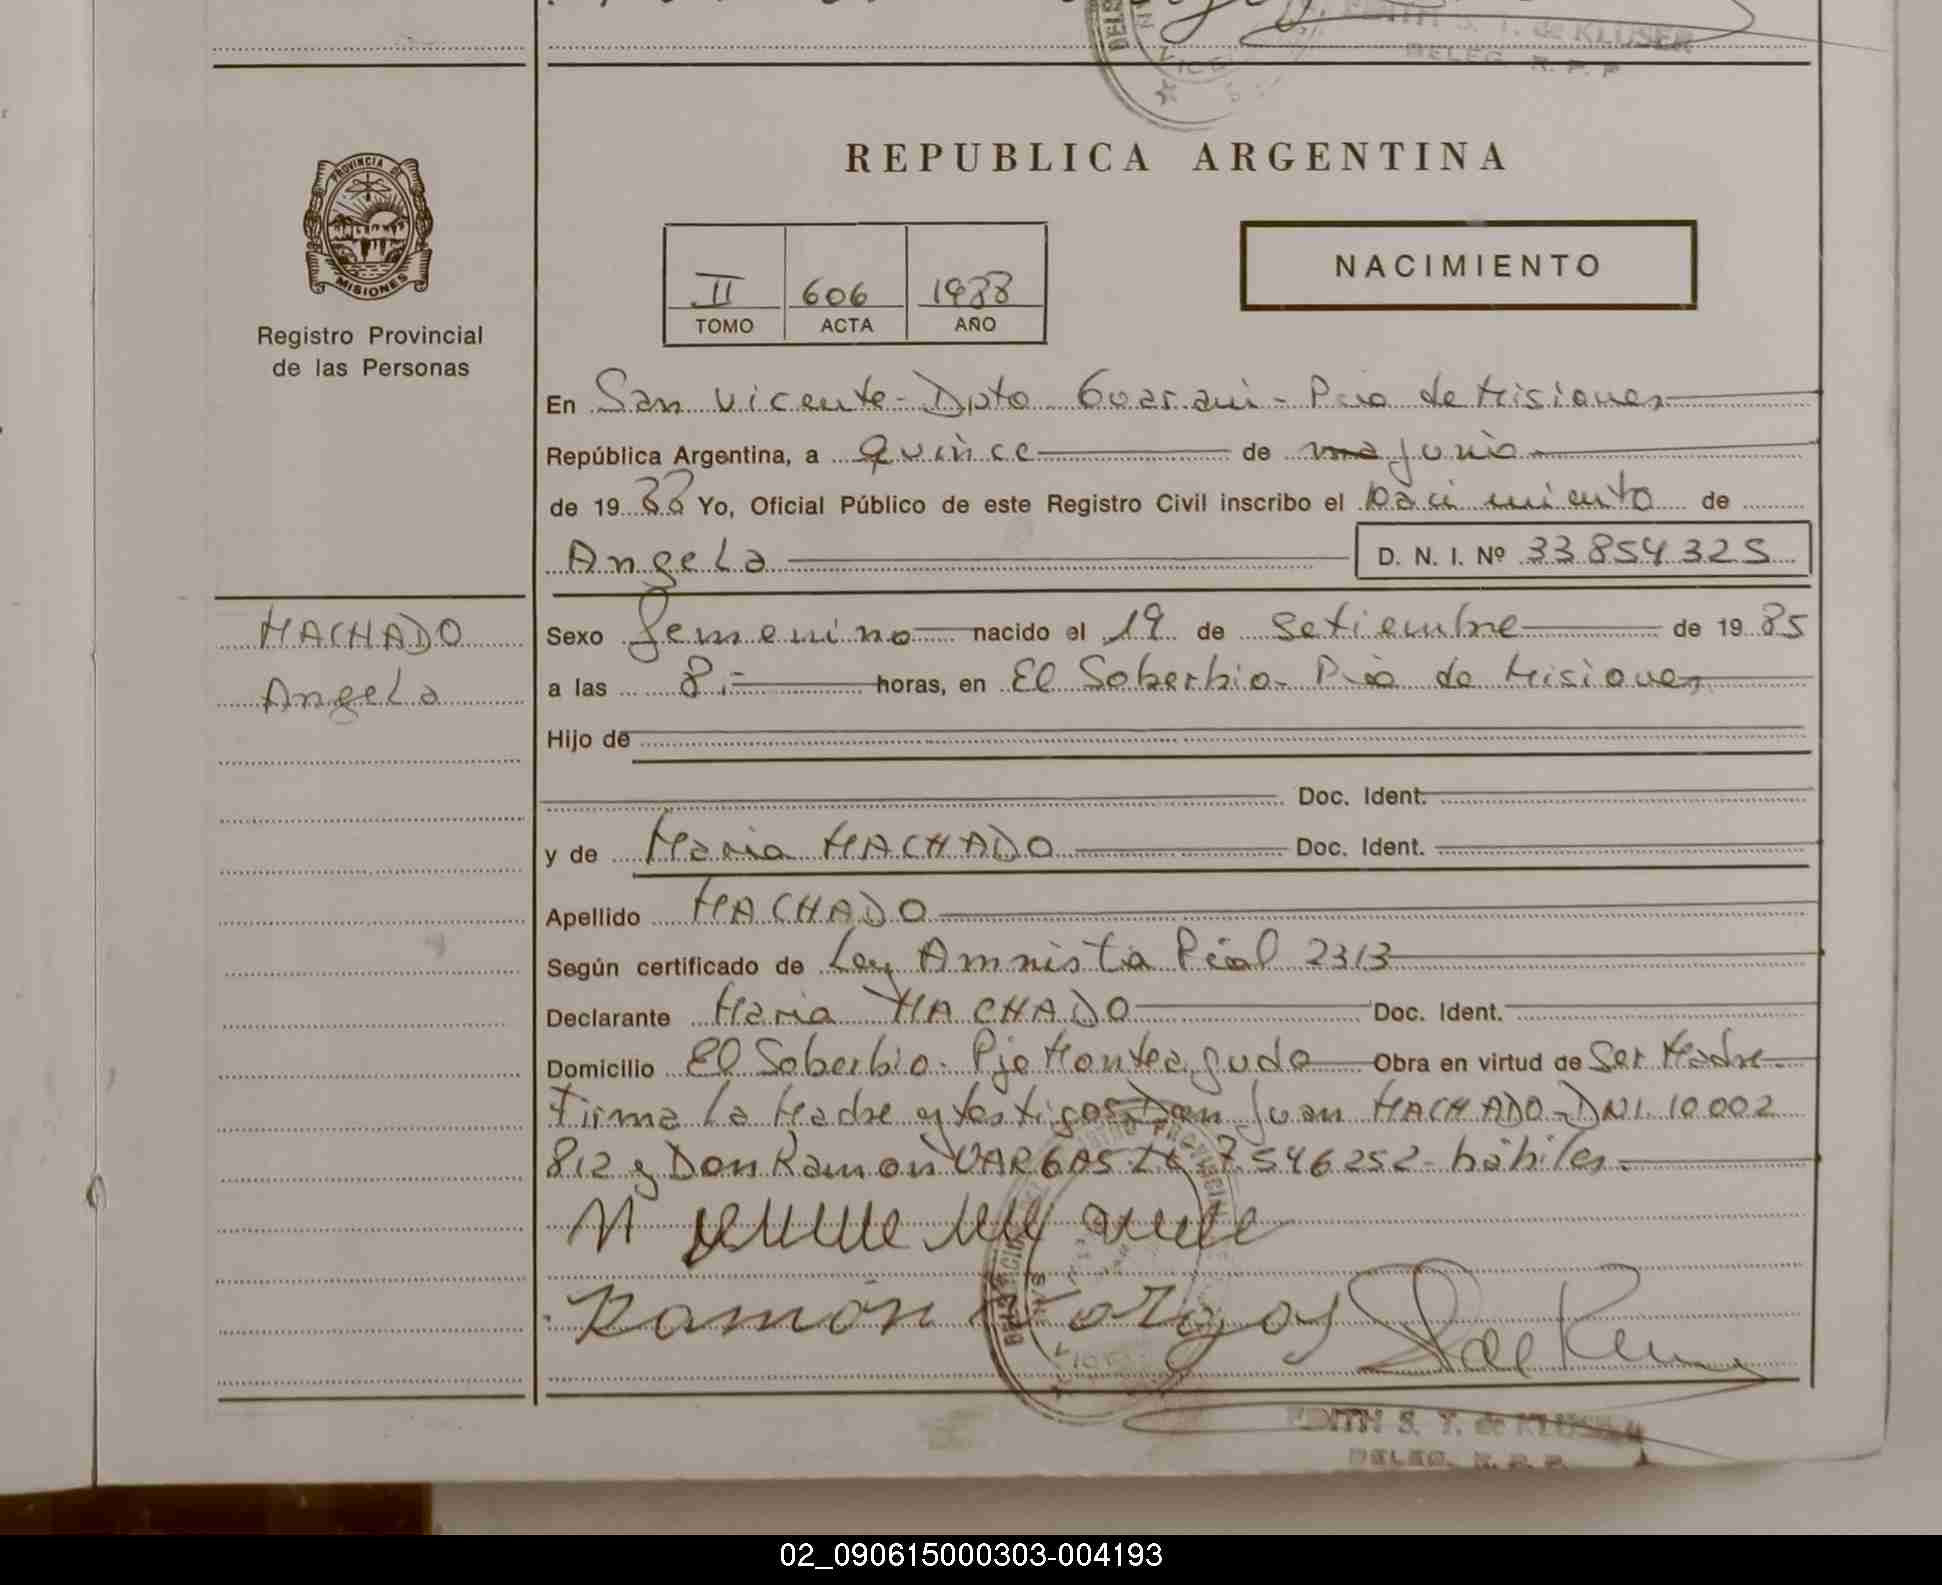 EDITH S. T. de KLUSER
DELEG. R. P. P.
PROVINCIA DE
MISIONES
Registro Provincial
de las Personas
REPUBLICA ARGENTINA
II 606 1988
TOMO ACTA AÑO
NACIMIENTO
En San Vicente - Dpto Guarani - Pcia de Misiones
República Argentina, a quince de junio
de 1988 Yo, Oficial Público de este Registro Civil inscribo el nacimiento de
Angela D. N. I. Nº 33.854.325
MACHADO
Angela
Sexo femenino nacido el 19 de Setiembre de 1985
a las 8.- horas, en El Soberbio - Pcia de Misiones
Hijo de
Doc. Ident.
y de Maria MACHADO Doc. Ident.
Apellido MACHADO
Según certificado de Ley Amnistia Pcial 2313
Declarante Maria MACHADO Doc. Ident.
Domicilio El Soberbio - Pje Monteagudo Obra en virtud de Ser Madre
Firma la Madre y testigos Don Juan MACHADO - DNI. 10.002
812 y Don Ramon VARGAS 7.546.252 - hábiles.
Ramón Vargas
EDITH S. T. de KLUSER
DELEG. R. P. P.
02_090615000303-004193